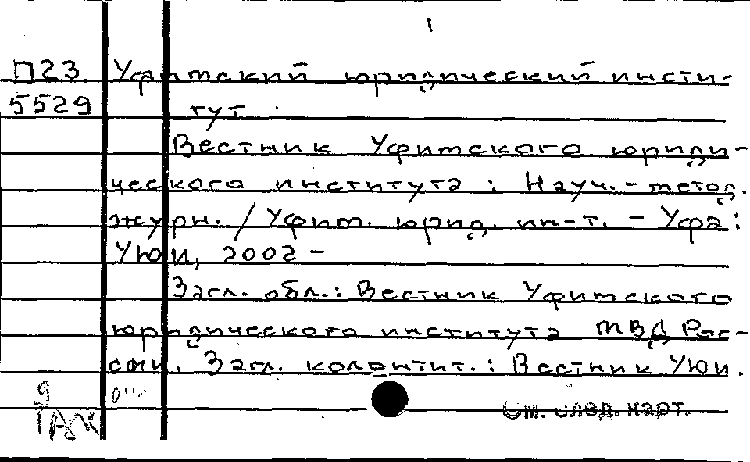 1
П23 Уфимский юридический инсти-
5529 тут
Вестник Уфимского юриди-
ческого института: Науч.-метод.
журн. / Уфим. юрид. ин-т. - Уфа:
УЮИ, 2002 -
Загл. обл.: Вестник Уфимского
юридического института МВД Рос-
сии. Загл. колонтит.: Вестник УЮИ.
9
См. след. карт.